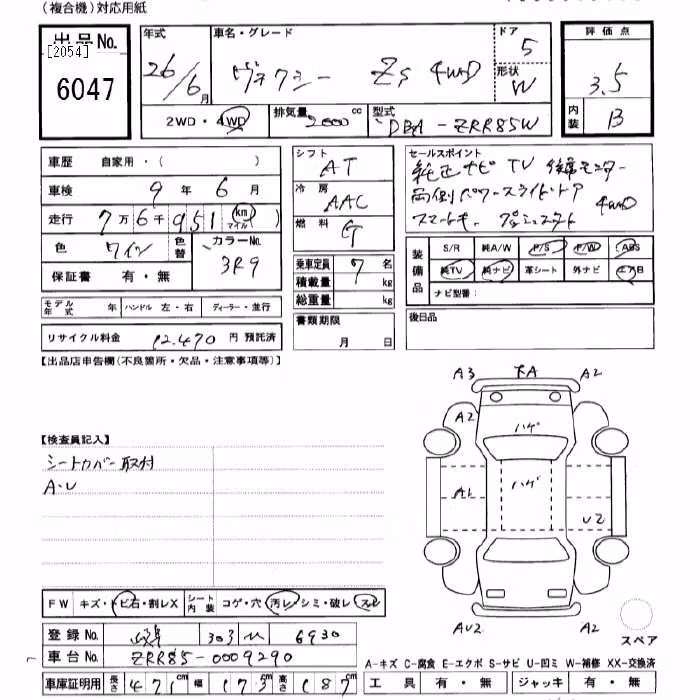 (複合機)対応用紙
出品No.
[2054]
6047
年式
26/6月
車名・グレード
ヴォクシー Zs 4WD
ドア
5
形状
W
評価点
3.5
内装
B
2WD・4WD
排気量 2000 cc
型式
DBA-ZRR85W
車歴 自家用・( )
車検 9年 6月
走行 7万 6千 951 (km マイル)
色 ワイン
色替
カラーNo.
3R9
保証書 有・無
モデル年式 年 ハンドル 左・右 ディーラー・並行
リサイクル料金 12,470 円 預託済
シフト
AT
冷房
AAC
燃料
G
乗車定員 7 名
積載量 kg
総重量 kg
書類期限
月 日
セールスポイント
純正ナビ TV 後席モニター
両側パワースライドドア
スマートキー プッシュスタート 4WD
装備品
S/R 純A/W P/S P/W ABS
純TV 純ナビ 革シート 外ナビ エアB
ナビ型番:
後日品
【出品店申告欄(不良箇所・欠品・注意事項等)】
【検査員記入】
シートカバー取付
A・U
A3
A2
A2
A2
ハゲ
A1
ハゲ
U2
AU2
A2
スペア
FW キズ・トビ石・割レX
シート内装 コゲ・穴 汚レ シミ・破レ スレ
登録No. 岐阜 303 6930
車台No. ZRR85-0009290
車庫証明用 長さ 471cm 幅 173cm 高さ 187cm
A-キズ C-腐食 E-エクボ S-サビ U-凹ミ W-補修 XX-交換済
工具 有・無 ジャッキ 有・無